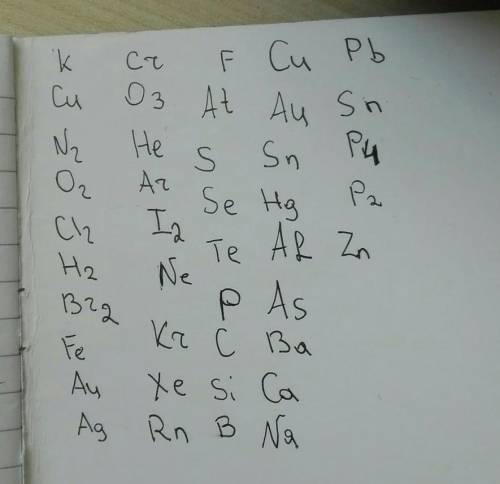 K Cr F Cu Pb
Cu O3 At Au Sn
N2 He S Sn P4
O2 Ar Se Hg P2
Cl2 I2 Te Al Zn
H2 Ne P As
Br2 Kr C Ba
Fe Xe Si Ca
Au Rn B Na
Ag